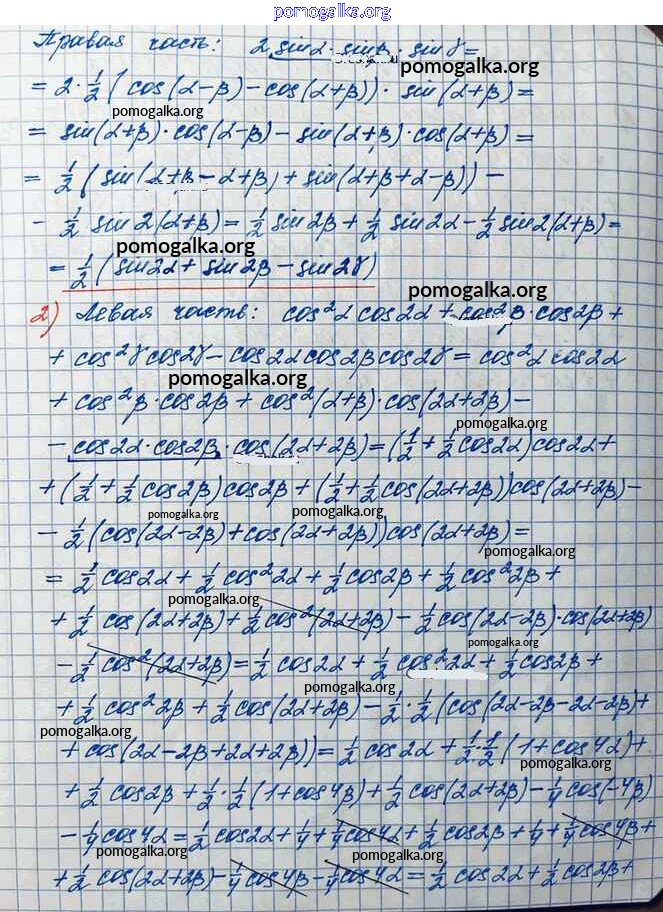 pomogalka.org
Правая часть: 2 sinα · sinβ · sinγ =
pomogalka.org
= 2 · 1/2 (cos(α-β) - cos(α+β)) · sin(α+β) =
pomogalka.org
= sin(α+β) · cos(α-β) - sin(α+β) · cos(α+β) =
= 1/2 (sin(α+β-α+β) + sin(α+β+α-β)) -
- 1/2 sin 2(α+β) = 1/2 sin 2β + 1/2 sin 2α - 1/2 sin 2(α+β) =
pomogalka.org
= 1/2 (sin 2α + sin 2β - sin 2γ)
pomogalka.org
2) Левая часть: cos²α cos 2α + cos²β · cos 2β +
+ cos²γ cos 2γ - cos 2α cos 2β cos 2γ = cos²α cos 2α
pomogalka.org
+ cos²β · cos 2β + cos²(α+β) · cos(2α+2β) -
pomogalka.org
- cos 2α · cos 2β · cos(2α+2β) = (1/2 + 1/2 cos 2α) cos 2α +
+ (1/2 + 1/2 cos 2β) cos 2β + (1/2 + 1/2 cos(2α+2β)) cos(2α+2β) -
pomogalka.org pomogalka.org
- 1/2 (cos(2α-2β) + cos(2α+2β)) cos(2α+2β) =
pomogalka.org
= 1/2 cos 2α + 1/2 cos² 2α + 1/2 cos 2β + 1/2 cos² 2β +
pomogalka.org
+ 1/2 cos(2α+2β) + 1/2 cos²(2α+2β) - 1/2 cos(2α-2β) · cos(2α+2β)
pomogalka.org
- 1/2 cos²(2α+2β) = 1/2 cos 2α + 1/2 cos² 2α + 1/2 cos 2β +
pomogalka.org
+ 1/2 cos² 2β + 1/2 cos(2α+2β) - 1/2 · 1/2 (cos(2α-2β-2α-2β) +
pomogalka.org
+ cos(2α-2β+2α+2β)) = 1/2 cos 2α + 1/2 · 1/2 (1 + cos 4α) +
pomogalka.org
+ 1/2 cos 2β + 1/2 · 1/2 (1 + cos 4β) + 1/2 cos(2α+2β) - 1/4 cos(-4β)
pomogalka.org
- 1/4 cos 4α = 1/2 cos 2α + 1/4 + 1/4 cos 4α + 1/2 cos 2β + 1/4 + 1/4 cos 4β +
pomogalka.org pomogalka.org
+ 1/2 cos(2α+2β) - 1/4 cos 4β - 1/4 cos 4α = 1/2 cos 2α + 1/2 cos 2β +